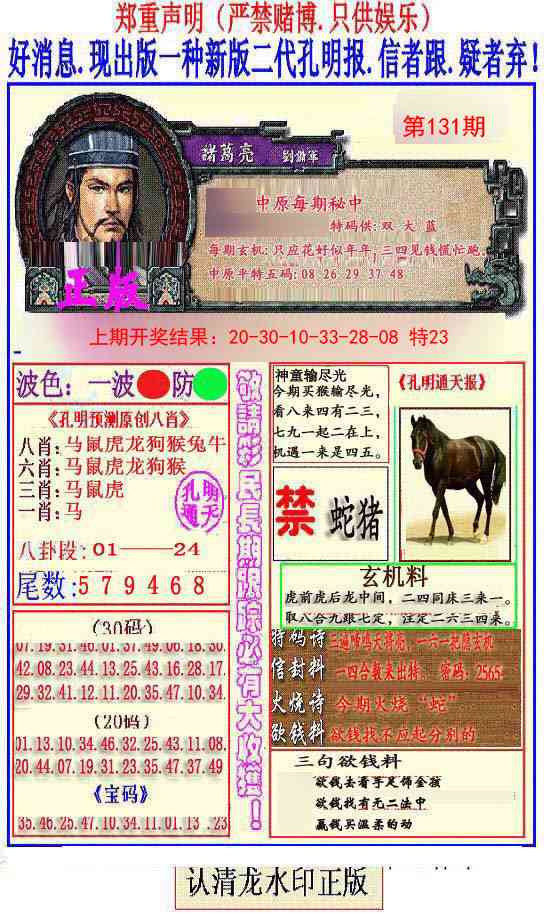 郑重声明（严禁赌博.只供娱乐）
好消息.现出版一种新版二代孔明报.信者跟.疑者弃!
第131期
諸葛亮 劉備軍
中原每期秘中
特码供:双 大 蓝
每期玄机:只应花好似年年,三四见钱慌忙跑.
中原平特五码:08 26 29 37 48
正版
上期开奖结果：20-30-10-33-28-08 特23
波色：一波 防
《孔明预测原创八肖》
八肖:马鼠虎龙狗猴兔牛
六肖:马鼠虎龙狗猴
三肖:马鼠虎
一肖:马
孔明
通天
八卦段:01——24
尾数:579468
(30码)
07.19.31.46.01.37.49.06.18.30.
42.08.23.44.13.25.43.16.28.17.
29.32.41.12.11.20.35.47.10.34.
(20码)
01.13.10.34.46.32.25.43.11.08.
20.44.07.19.31.23.35.47.37.49
《宝码》
35.46.25.47.10.34.11.01.13 .23
敬請彩民長期跟踪必有大收獲！
神童输尽光
今期买猴输尽光，
看八来四有二三，
七九一起二在上，
机遇一来是四五。
《孔明通天报》
禁 蛇猪
玄机料
虎前虎后龙中间，二四同床三来一。
取八合九跟七定，注定二六三四来。
特码诗 三遍啼鸣天将亮，一六一起隐玄机
信封料 一四合数来出特. 密码：2565.
火烧诗 今期火烧“蛇”
欲钱料 欲钱找不应起分别的
三句欲钱料
欲钱去看手足饰金孩
欲钱找有无二法中
赢钱买温柔的动
认清龙水印正版